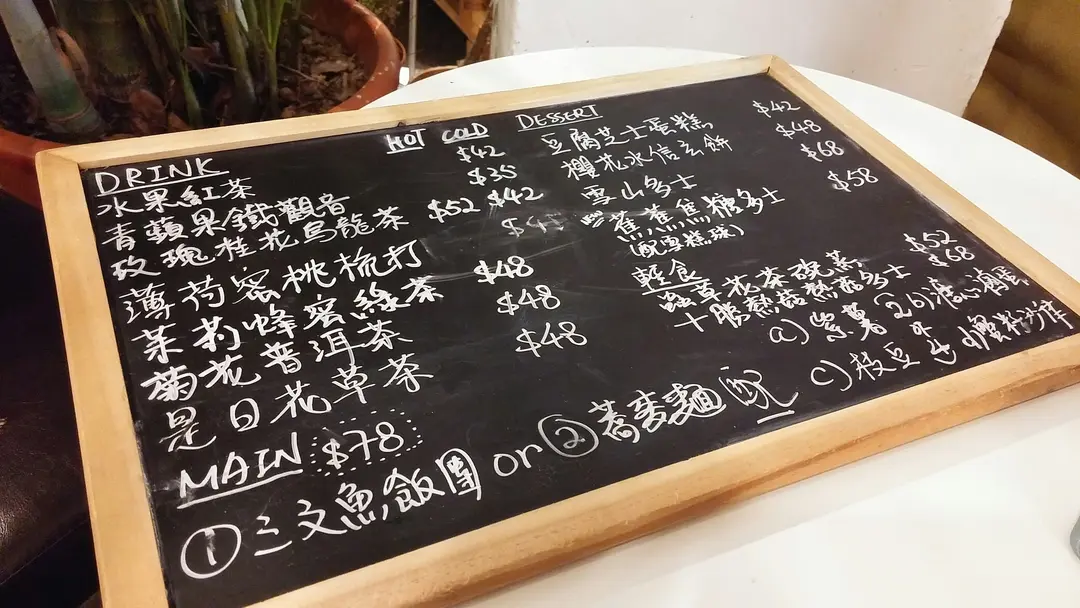 DRINK HOT COLD
水果紅茶 $42
青蘋果鐵觀音 $35
玫瑰桂花烏龍茶 $52 $42
薄荷蜜桃梳打
茉莉蜂蜜綠茶 $48
菊花普洱茶 $48
是日花草茶 $48
MAIN $78
① 三文魚飯團 or ② 蕎麥麵 配
DESSERT
豆腐芝士蛋糕 $42
櫻花水信玄餅 $48
雪山多士 $68
蕉蕉焦糖多士 $58
(配雪糕球)
輕食
蟲草花茶碗蒸 $52
十勝熱菇熱菇多士 $68
a) 紫薯 b) 溏心滷蛋
c) 枝豆 d) 蟹籽沙律